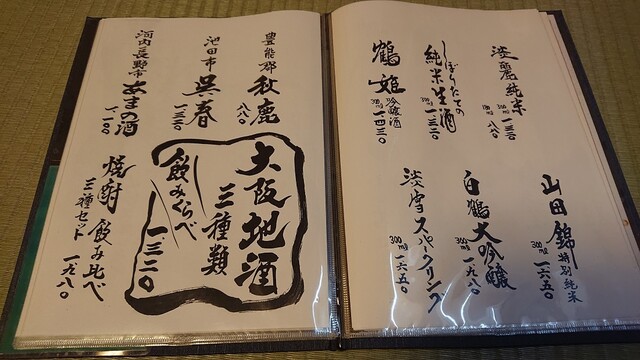 淡麗純米
300ml 一三二〇
180ml 八八〇
しぼりたての
純米生酒
300ml 一三二〇
鶴姫
吟醸酒
300ml 一四三〇
山田錦
特別純米
300ml 一六五〇
白鶴大吟醸
300ml 一九八〇
淡雪スパークリング
300ml 一六五〇
豊能郡
秋鹿
八八〇
池田市
呉春
一三二〇
河内長野市
あまの酒
一一〇〇
大阪地酒
三種類
飲みくらべ
一三二〇
焼酎飲み比べ
三種セット
一九八〇